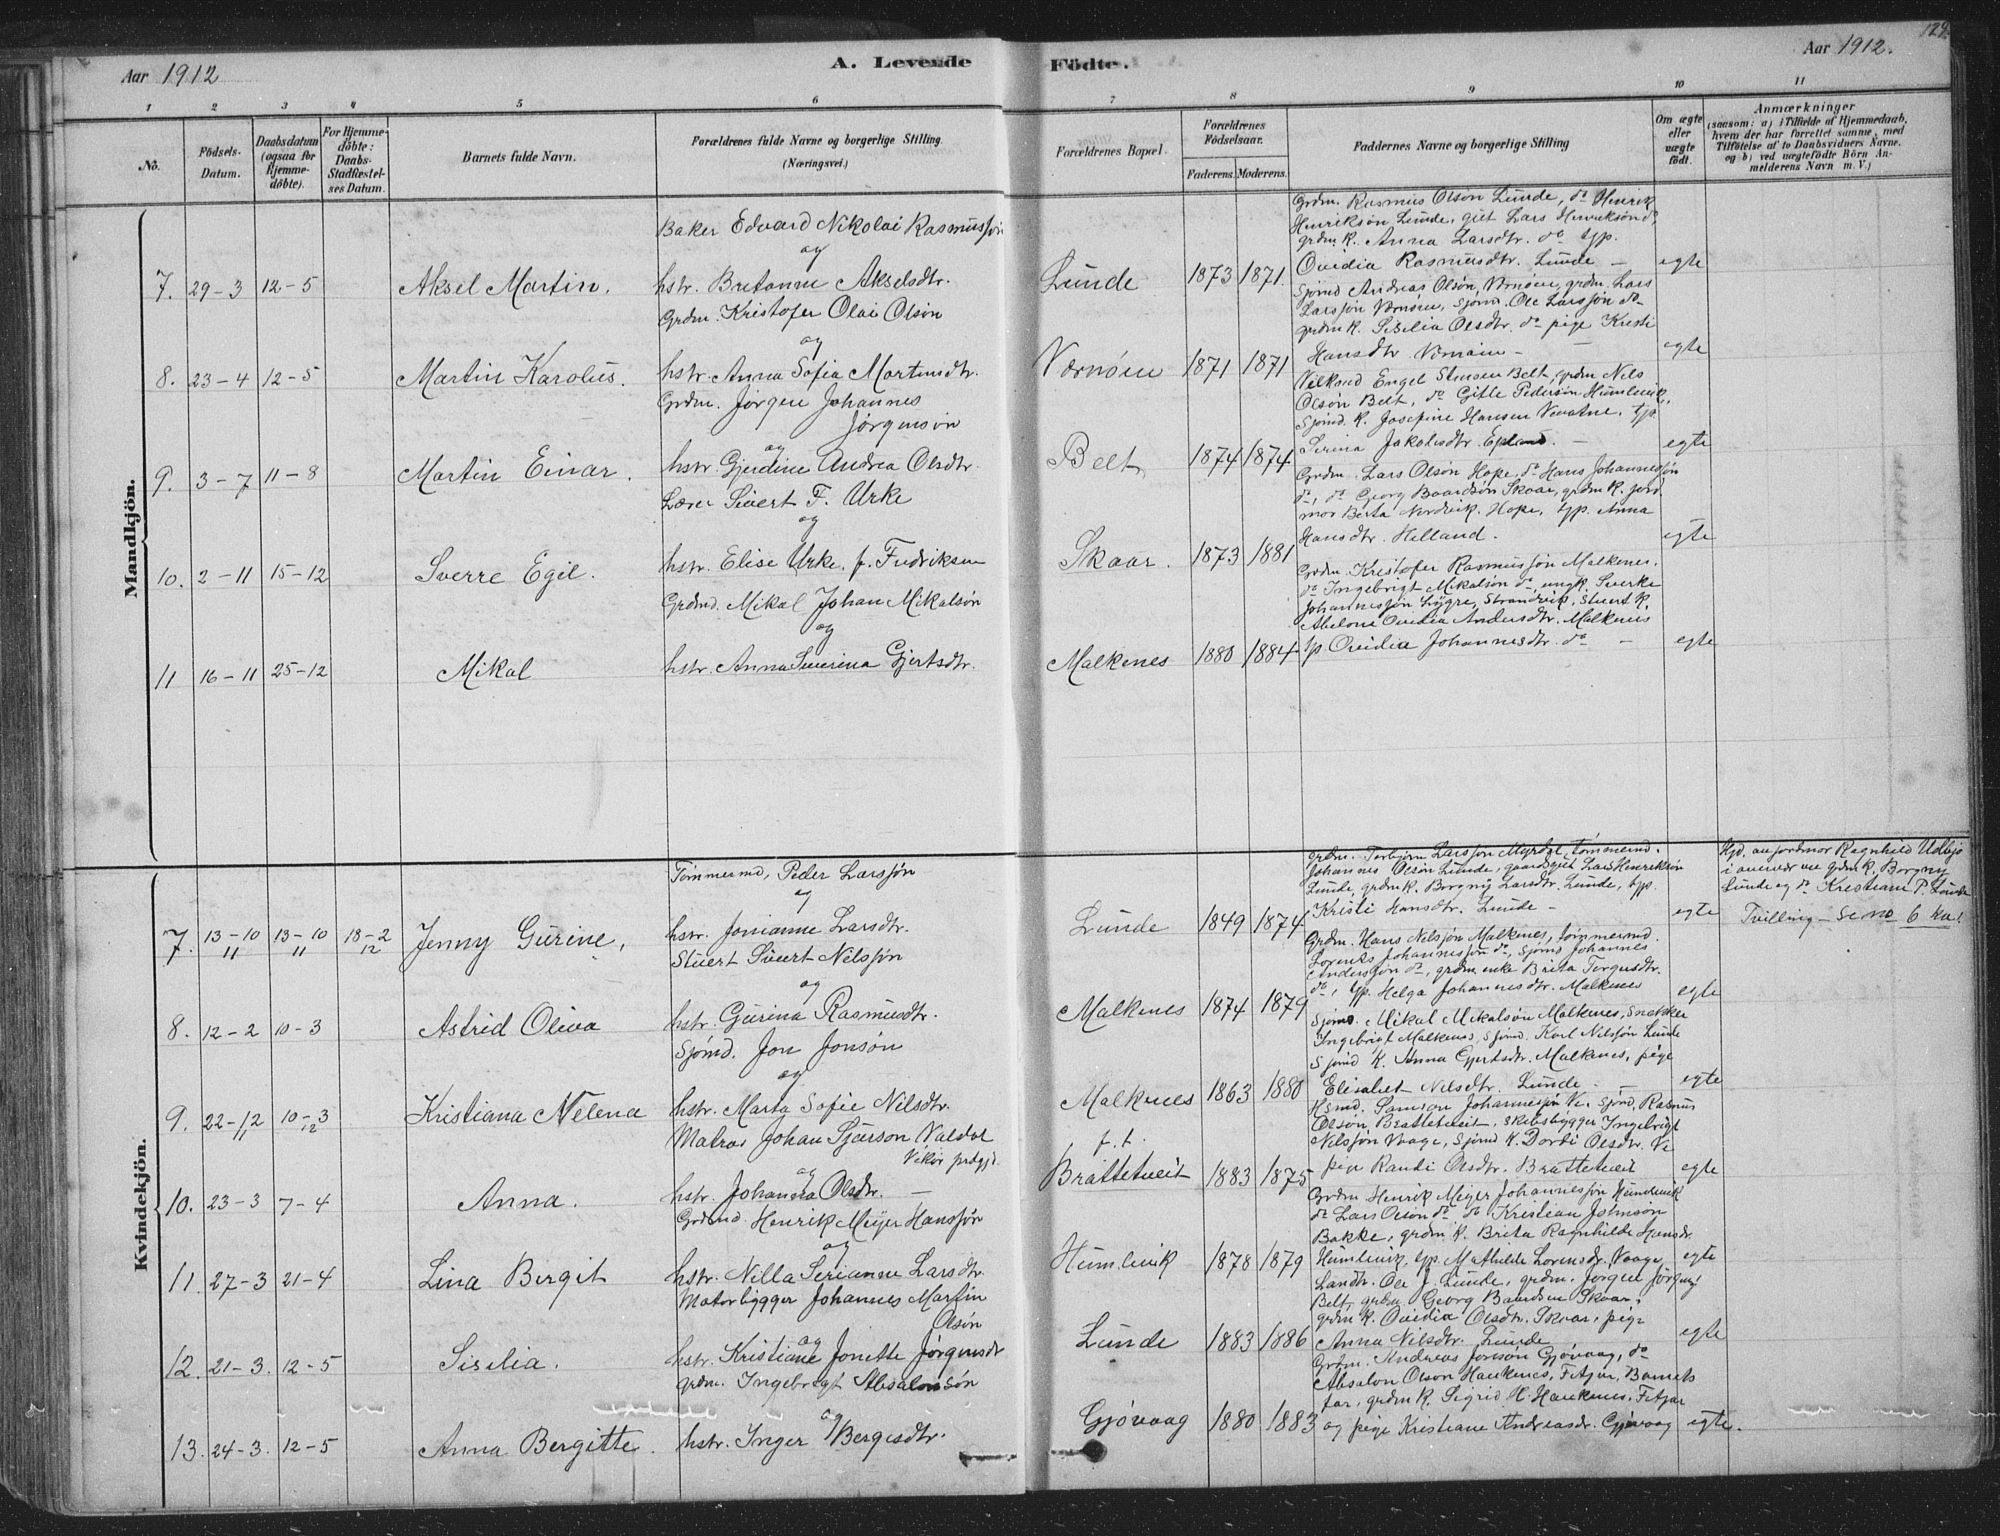 124.
Aar 1912
A. Levende
Födte.
Aar 1912.
1 2 3 4 5 6 7 8 9 10 11
No.
Födsels-
Datum.
Daabsdatum
(ogsaa for
hjemme-
döbte).
For Hjemme-
döbte:
Daabs-
Stadfæstel-
ses Datum.
Barnets fulde Navn.
Forældrenes fulde Navne og borgerlige Stilling
(Næringsvei.)
Forældrenes Bopæl.
Forældrenes
Födselsaar.
Faderens. Moderens.
Faddernes Navne og borgerlige Stilling
Om ægte
eller
uægte
födt.
Anmærkninger
(saasom: a) i Tilfælde af Hjemmedaab,
hvem der har forrettet samme, med
Tilföielse af to Daabsvidners Navne.
og b) ved uægtefödte Börn An-
melderens Navn m. V.)
Mandkjön.
7. 29-3 12-5 Aksel Martin.
Baker Edvard Nikolai Rasmussön
og
hstr. Bretanne Akselsdtr.
Lunde 1873 1871
Grdm. Rasmus Olsön Lunde, do Henrik
Henriksön Lunde, gift Lars Henriksön do,
grdm k. Anna Larsdtr. do tjp.
Ovidia Rasmusdtr. Lunde -
egte
8. 23-4 12-5 Martin Karolus.
Grdm. Kristofer Olai Olsön
og
hstr. Anna Sofia Martinsdtr.
Værnöen 1871 1871
Sjömd Andreas Olsön, Værnöen, grdm. Lars
Larssön Værnöen, sjömd. Ole Larssön do
grdm k. Sisilia Olsdtr. do pige Kristi
Hansdtr. Værnöen -
egte
9. 3-7 11-8 Martin Einar.
Grdm. Jörgen Johannes
Jörgensön
og
hstr. Gjerdine Andrea Olsdtr.
Belt 1874 1874
Engel Stensen Belt, grdm Nils
Olsön Belt, do Gitle Pedersön Humlevik,
Sjömd. k. Josefine Hansen Vevatne, tjp.
Serina Jakobsdtr. Epland. -
egte
10. 2-11 15-12 Sverre Egil.
Lærer Sivert F. Urke
og
hstr. Elise Urke, f. Fredriksen
Skaar. 1873 1881
Grdm. Lars Olsön Hope, do Hans Johannessön
do, do Georg Baardsön Skaar, grdm k. jord
mor Berta Hope, tjp. Anna
Hansdtr. Helland.
egte
11 16-11 25-12 Mikal
Grdmd. Mikal Johan Mikalsön
og
hstr. Anna Severina Gjertsdtr.
Malkenes 1880 1884
Grdm. Kristofer Rasmussön Malkenes,
do Ingebrigt Mikalsön do, ungk. Sverke
Johannessön Lygre, Strandvik, Stuert k.
Abelone Ovidia Andersdtr. Malkenes
tjp Ovidia Johannesdtr. do -
egte
Kvindekjön.
7. 13-10/11 13-10/11 18-2/12 Jenny Gurine,
Tömmermd, Peder Larssön
og
hstr. Jonianne Larsdtr.
Lunde 1849 1874
Grdm. Torbjörn Larssön Myrdal, tömmermd.
Johannes Olsön Lunde, gaardgjet Lars Henriksön
Lunde, grdm k. Borgny Larsdtr. Lunde, tjp.
Kristi Hansdtr. Lunde -
egte
Hjd. av jordmor Ragnhild Udbjö
i overvær av grdm k. Borgny
Lunde og do Kristiane P. Lunde
Tvilling - Se no 6 ka.!
8. 12-2 10-3 Astrid Oliva
Stuert Sivert Nilssön
og
hstr. Gurina Rasmusdtr.
Malkenes 1874 1879
Grdm. Hans Nilssön Malkenes, tömmermd.
Lorents Johannessön do, Sjömd Johannes
Anderssön do, grdm. enke Brita Torgersdtr.
do, tjp. Helga Johannesdtr. Malkenes
egte
9. 22-12/11 10-3/12 Kristiana Nelena
Sjömd. Jon Jonsön
og
hstr. Marta Sofie Nilsdtr.
Malkenes 1863 1880
Sjömd. Mikal Mikalsön Malkenes, Snekker
Ingebrigt Malkenes, sjömd. Karl Nilssön Lunde
Sjömd k. Anna Gjertsdtr. Malkenes, pige
Elisabet Nilsdtr. Lunde -
egte
10. 23-3 7-4 Anna.
Matros Johan Sjurson Valdal
Vikör prdgjd.
og
hstr. Johanna Olsdtr. -
f. t.
Brattetveit 1883 1875
Hsmd. Samson Johannessön Vi, sjömd, Rasmus
Olsön, Brattetveit, skibsbygger Ingebrigt
Nilssön Vaage, sjömd k. Dordi Olsdtr. Vi
pige Randi Olsdtr. Brattetveit
egte
11. 27-3 21-4 Lina Bergit
Grdmd. Henrik Meyer Hanssön
og
hstr. Nilla Serianne Larsdtr.
Humlevik 1878 1879
Grdm Henrik Meyer Johannessön Humlevik
do Lars Olsön do do Kristian Johnsön
Bakke, grdm k. Brita Ragnhilde Hansdr.
Humlevik, tjp. Mathilde Lorensdr. Vaage
egte
12. 21-3. 12-5 Sisilia.
Motorbygger Johannes Martin
Olsön
og
hstr. Kristiane Jonette Jörgensdr
Lunde 1883 1886
Landtr. Ole J. Lunde, grdm. Jörgen Jörgens.
Belt, grdm Georg Baardsen Skaar,
grdm k. Ovidia Olsdtr. Skaar, pige
Anna Nilsdtr. Lunde
egte
13. 24-3. 12-5 Anna Bergitte.
grdm. Ingebrigt Absalonsön
og
hstr. Inger Bergesdtr.
Gjövaag 1880 1883
Grdm. Andreas Jonsön Gjövaag, do
Absalon Olson Haukenes, Fitjar, Barnets
far, grdm k. Sigrid H. Haukenes, Fitjar
og pige Kristiane Andreasdr. Gjøvaag
egte.